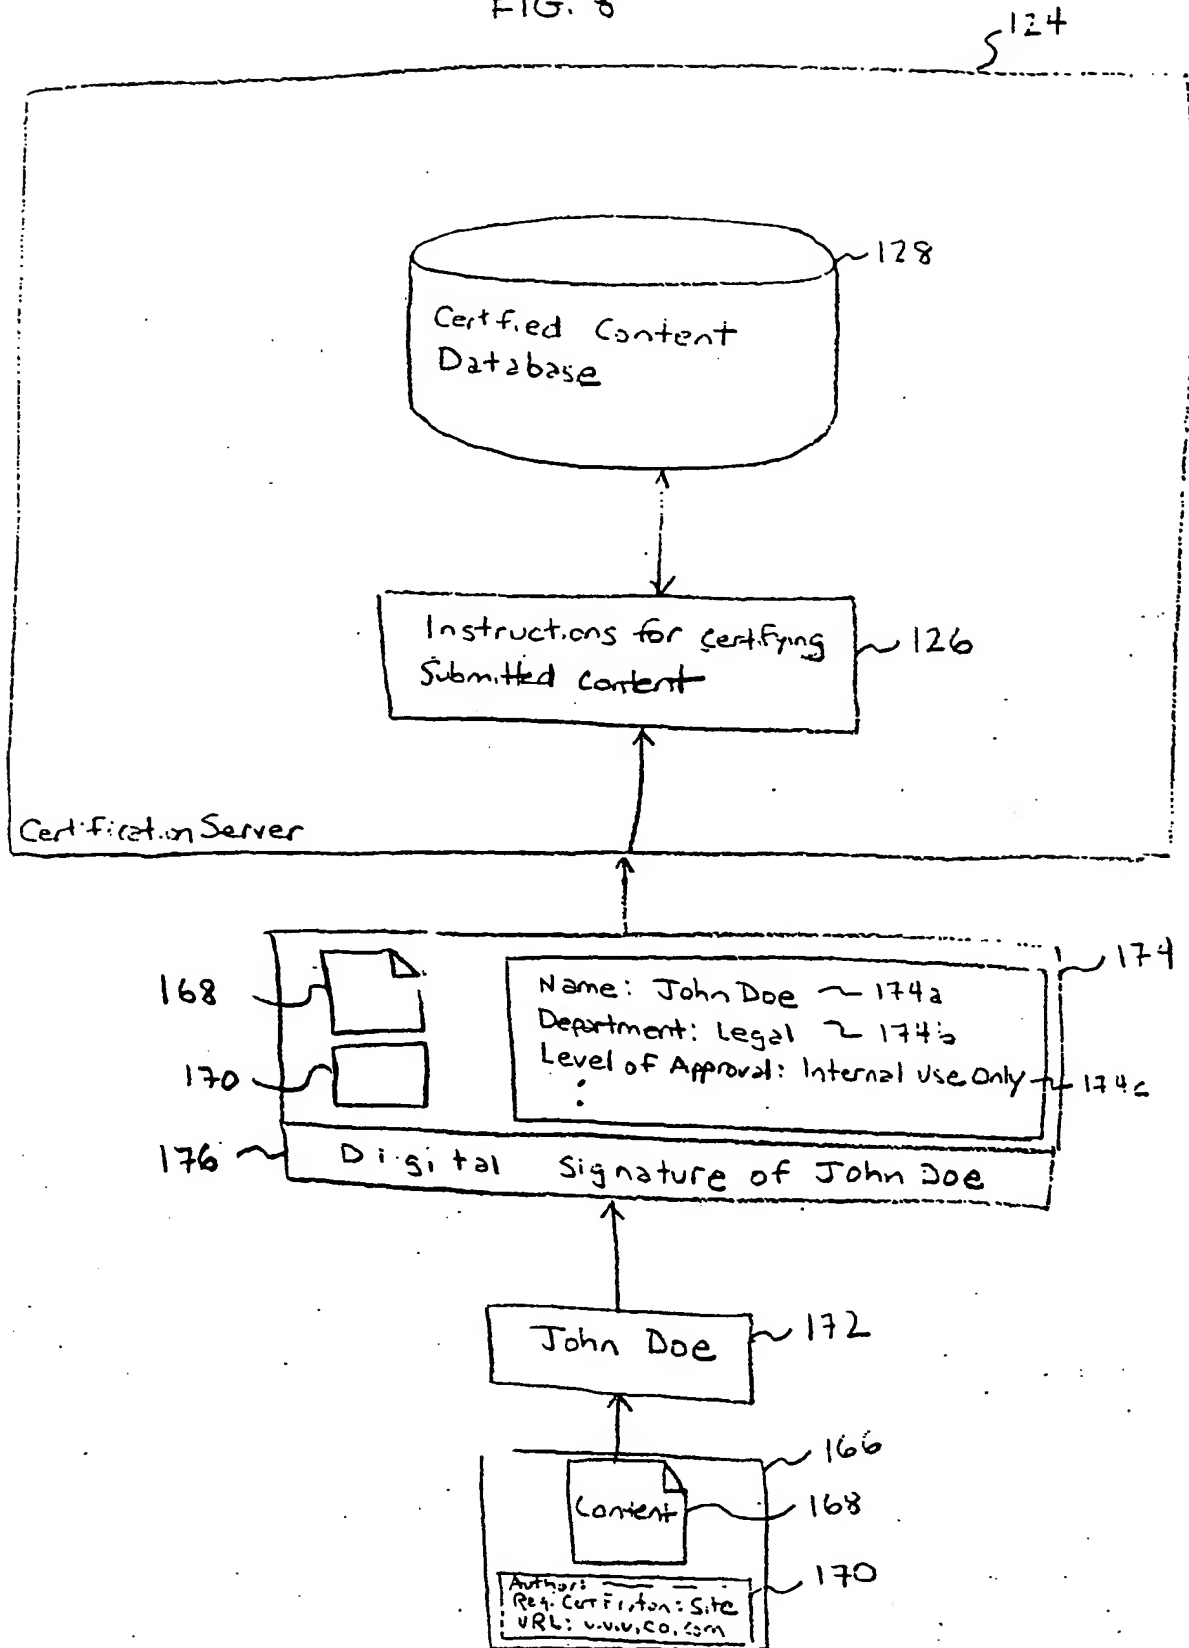 FIG. 8
124
128
Certified Content
Database
Instructions for certifying
Submitted Content
126
Certification Server
174
168
Name: John Doe 174a
Department: Legal 174b
170
Level of Approval: Internal Use Only 174c
176
Digital Signature of John Doe
John Doe
172
166
Content
168
170
Author:
Req. Certification: Site
URL: www.co.com